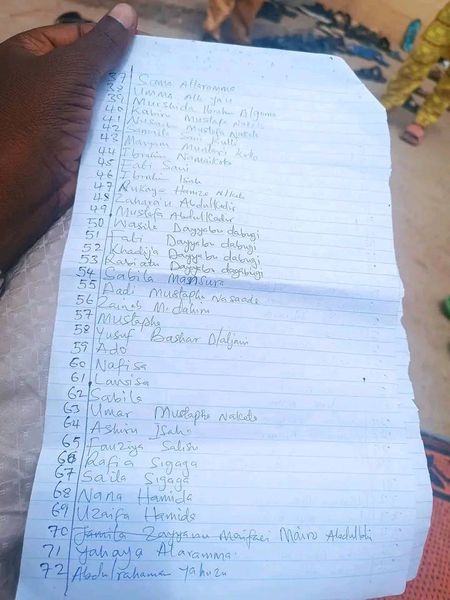 37 Sama Attaramma
38 Umma Ali Yau
39 Murshida Ibrahim
40 Rabiu Mustafa
41 Mustafa
42 Sani Kulli
43 Maryam Muntari
44 Ibrahim
45 Fati Sani
46 Ibrahim Isah
47 Rukayya Hamza
48 Zahara'u Abdulkadir
49 Mustafa Abdulkadir
50 Wasila Dayyabu dabugi
51 Fati Dayyabu dabugi
52 Khadija Dayyabu dabugi
53 Rabiatu Dayyabu dagabugi
54 Sabila Mansura
55 Aadi Mustapha
56 Zainab M. dahiru
57 Mustapha
58 Yusuf Bashar D/aljinni
59 Ado
60 Nafisa
61 Lansisa
62 Sabila
63 Umar Mustapha
64 Ashiru Isah
65 Fauziya Salisu
66 Rafia Sigaga
67 Sa'ila Sigaga
68 Nana Hamida
69 Uzaifa Hamida
70 Jamila Zayyanu Mairo
71 Yahaya Ataramma
72 Abdulrahaman Yahuzu